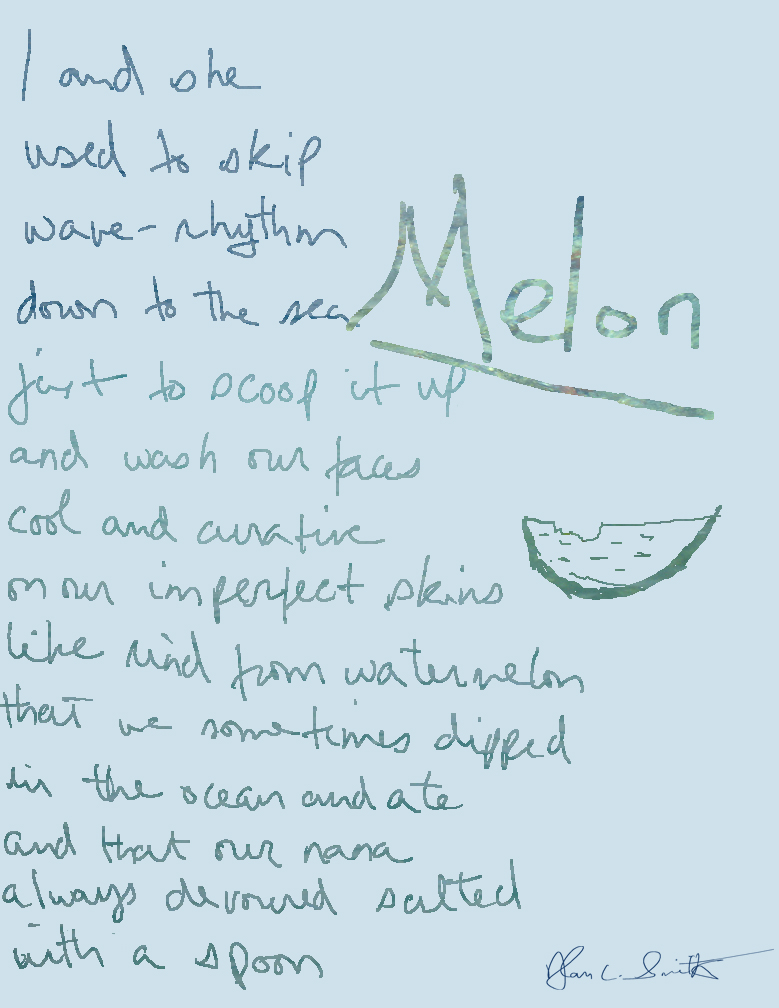 Melon
I and she
used to skip
wave-rhythm
down to the sea
just to scoop it up
and wash our faces
cool and curative
on our imperfect skins
like rind from watermelon
that we sometimes dipped
in the ocean and ate
and that our nana
always devoured salted
with a spoon
Alan C. Smith